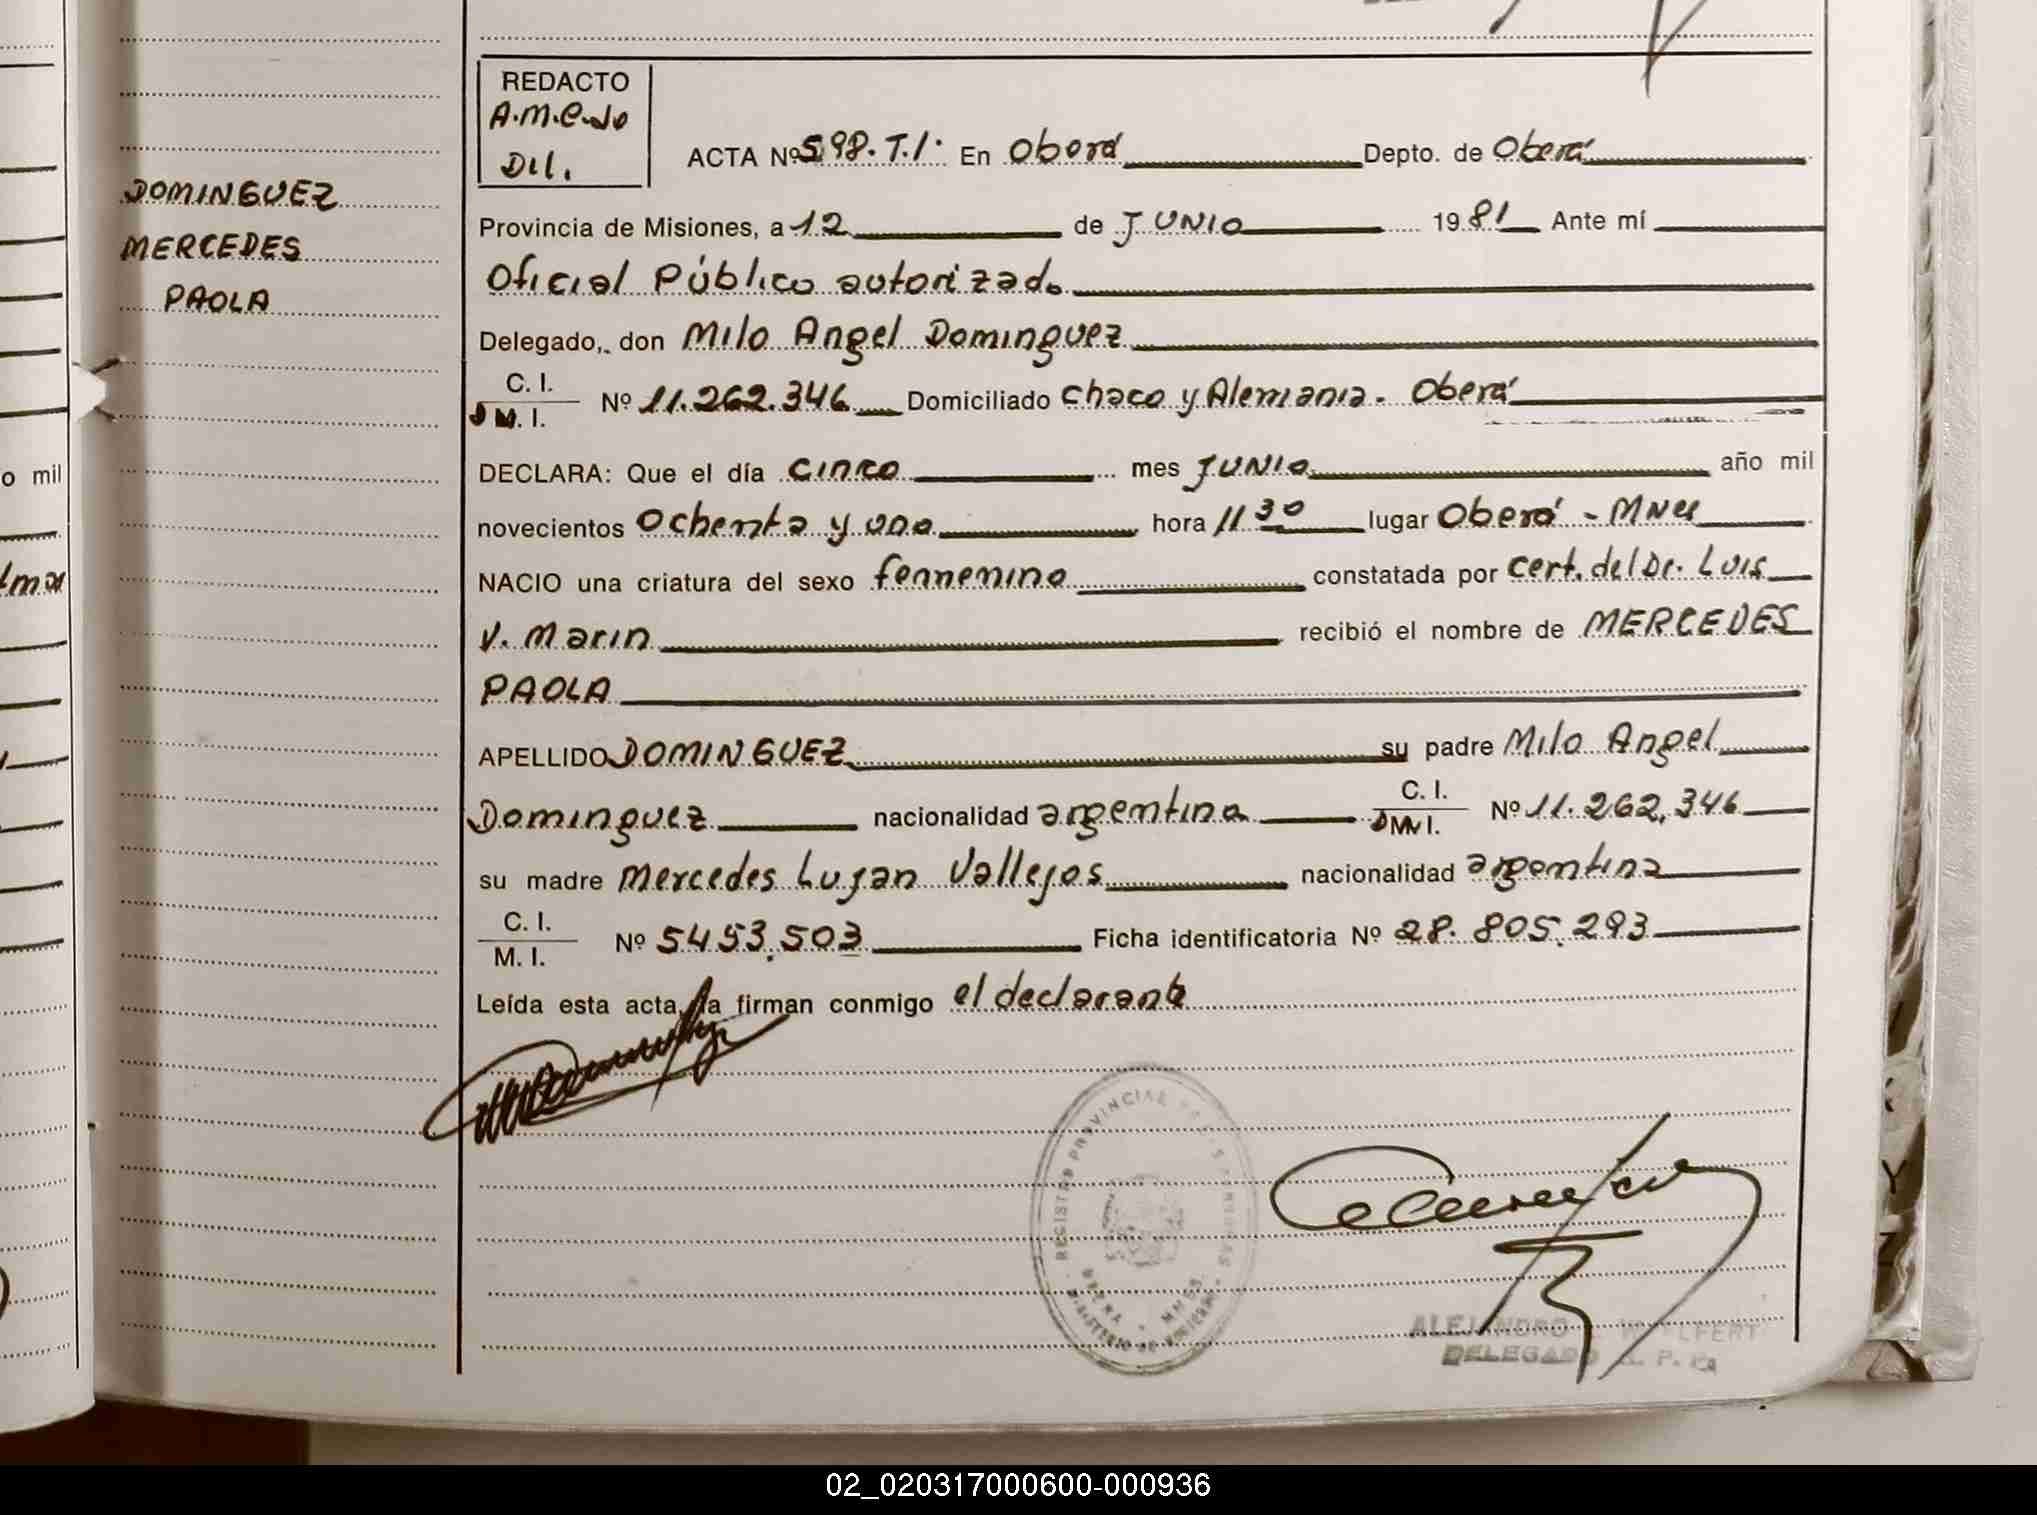 REDACTO
A.M.C.do
DU.
ACTA Nº 598.T.I. En Oberá Depto. de Oberá
DOMINGUEZ
MERCEDES
PAOLA
Provincia de Misiones, a 12 de JUNIO 1981 Ante mí
Oficial Público autorizado
Delegado, don Milo Angel Dominguez
C. I.
M. I. Nº 11.262.346 Domiciliado Chaco y Alemania. Oberá
DECLARA: Que el día cinco mes JUNIO año mil
novecientos ochenta y uno hora 11 30 lugar Oberá - Mnes
NACIO una criatura del sexo femenino constatada por cert. del Dr. Luis
V. Marin recibió el nombre de MERCEDES
PAOLA
APELLIDO DOMINGUEZ su padre Milo Angel
Dominguez nacionalidad argentina C. I.
M. I. Nº 11.262.346
su madre Mercedes Lujan Vallejos nacionalidad argentina
C. I.
M. I. Nº 5453.503 Ficha identificatoria Nº 28.805.293
Leída esta acta, la firman conmigo el declarante
REGISTRO PROVINCIAL DE LAS PERSONAS
OBERA MNES.
MINISTERIO DE GOBIERNO
ALEJANDRO WOLFERT
DELEGADO R. P. P.
o mil
02_020317000600-000936